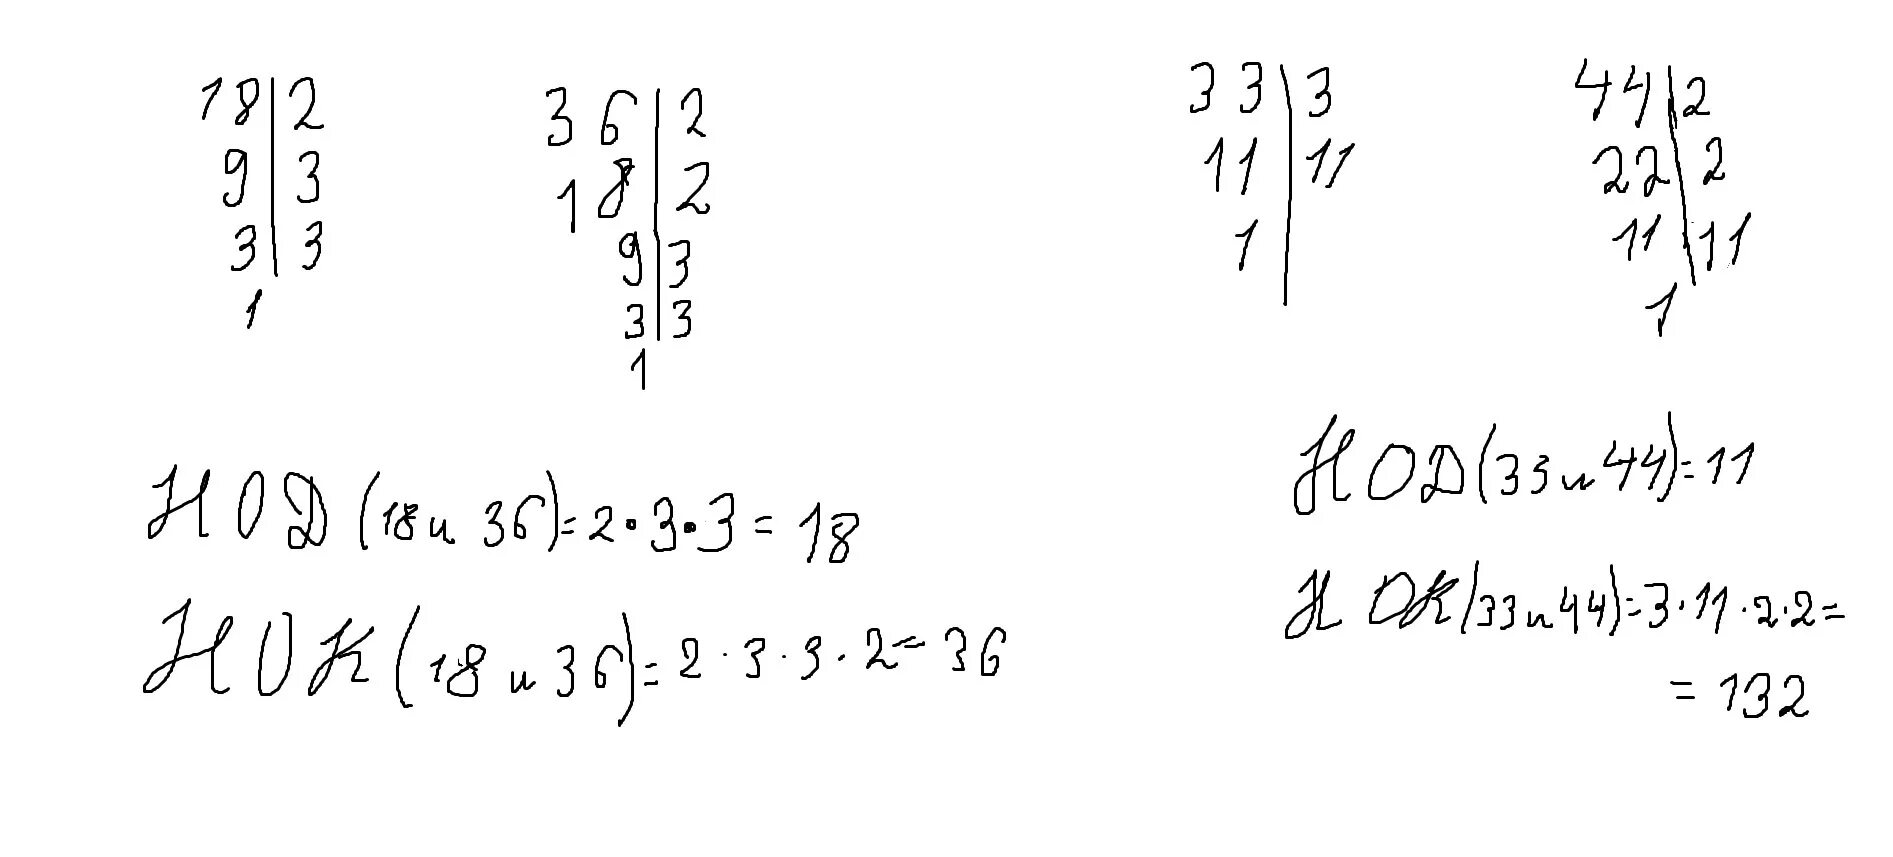 18|2
9|3
3|3
1
36|2
18|2
9|3
3|3
1
НОД(18 и 36)=2·3·3=18
НОК(18 и 36)=2·3·3·2=36
33|3
11|11
1
44|2
22|2
11|11
1
НОД(33 и 44)=11
НОК(33 и 44)=3·11·2·2=
=132